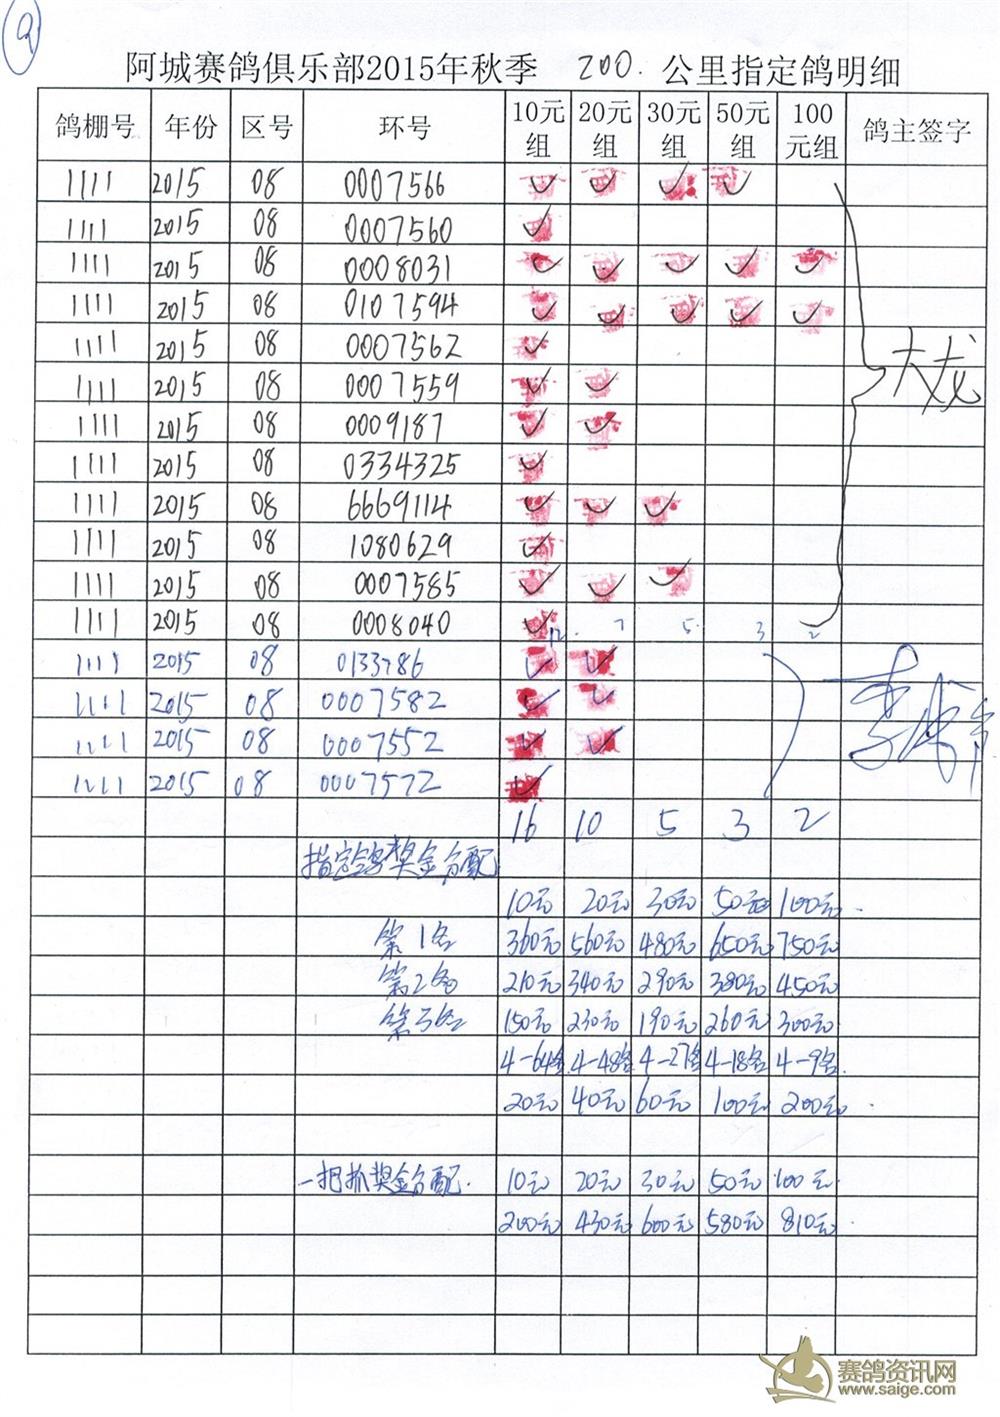 9
阿城赛鸽俱乐部2015年秋季 200. 公里指定鸽明细
鸽棚号 年份 区号 环号 10元组 20元组 30元组 50元组 100元组 鸽主签字
1111 2015 08 0007566 ✓ ✓ ✓ ✓
1111 2015 08 0007560 ✓
1111 2015 08 0008031 ✓ ✓ ✓ ✓ ✓
1111 2015 08 0107594 ✓ ✓ ✓ ✓ ✓
1111 2015 08 0007562 ✓
大龙
1111 2015 08 0007559 ✓ ✓
1111 2015 08 0009187 ✓ ✓
1111 2015 08 0334325 ✓
1111 2015 08 6669114 ✓ ✓ ✓
1111 2015 08 1080629 ✓
1111 2015 08 0007585 ✓ ✓ ✓
1111 2015 08 0008040 ✓
12. 7 5. 3 2
1111 2015 08 0133786 ✓ ✓
1111 2015 08 0007582 ✓ ✓
1111 2015 08 0007552 ✓ ✓
1111 2015 08 0007572 ✓
16 10 5 3 2
指定鸽奖金分配
10元 20元 30元 50元 100元.
第1名 360元 560元 480元 650元 750元
第2名 210元 340元 290元 380元 450元
第3名 150元 230元 190元 260元 300元
4-64名 4-48名 4-27名 4-18名 4-9名.
20元 40元 60元 100元 200元.
一把抓奖金分配. 10元 20元 30元 50元 100元
200元 430元 600元 580元 810元.
赛鸽资讯网
www.saige.com